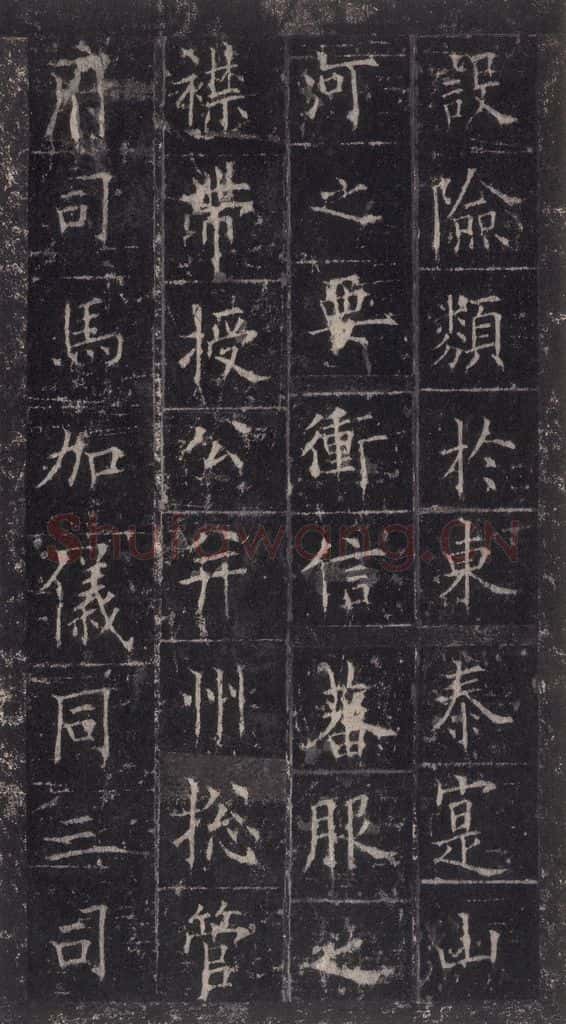 設險類於東秦寔山
河之要衝信蕃服之
襟帶授公并州揔管
府司馬加儀同三司
Shufawang.CN